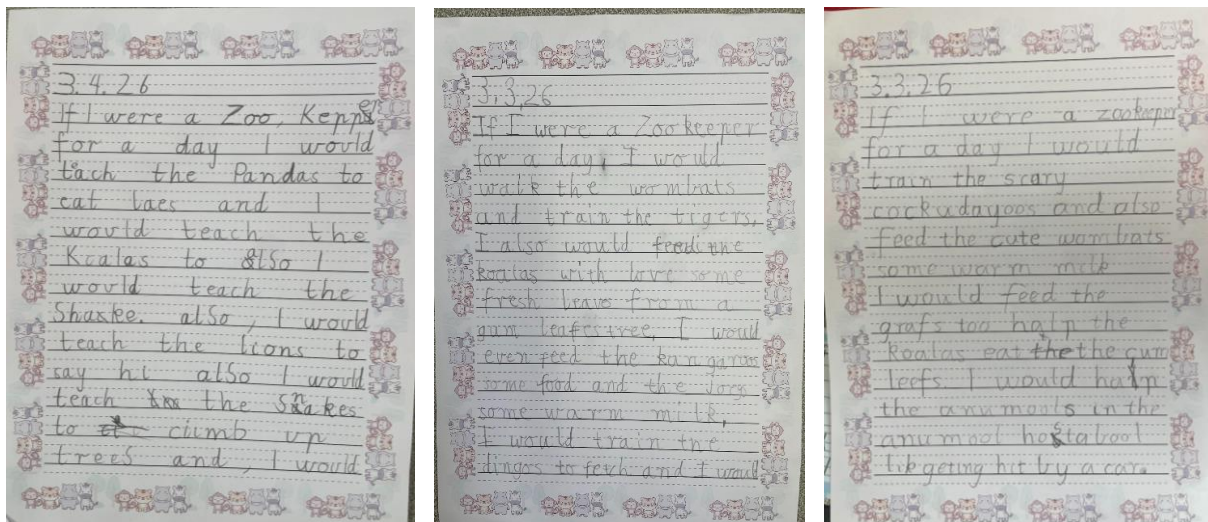 3.4.26
If I were a Zoo, Kepper
for a day I would
tach the Pandas to
eat laes and I
would teach the
Kialas to also I
would teach the
Shaxke. also, I would
teach the lions to
say hi also I would
teach the Snakes
to climb up
trees and, I would
3.3.26
If I were a Zookeeper
for a day, I would
walk the wombats
and train the tigers.
I also would feed the
koalas with love some
fresh leavs from a
gam leafestree, I would
even feed the kangaroos
some food and the Jorys
some warm milk,
I would train the
dingos to fetch and I would
3.3.26
If I were a zookeeper
for a day I would
train the scary
cockudayoos and also
feed the cute wombats
some warm milk
I would feed the
grafs too halp the
koalas eat the the gum
leefs I would halp
the anumools in the
anumool hostabool
lik geting hit by a car.